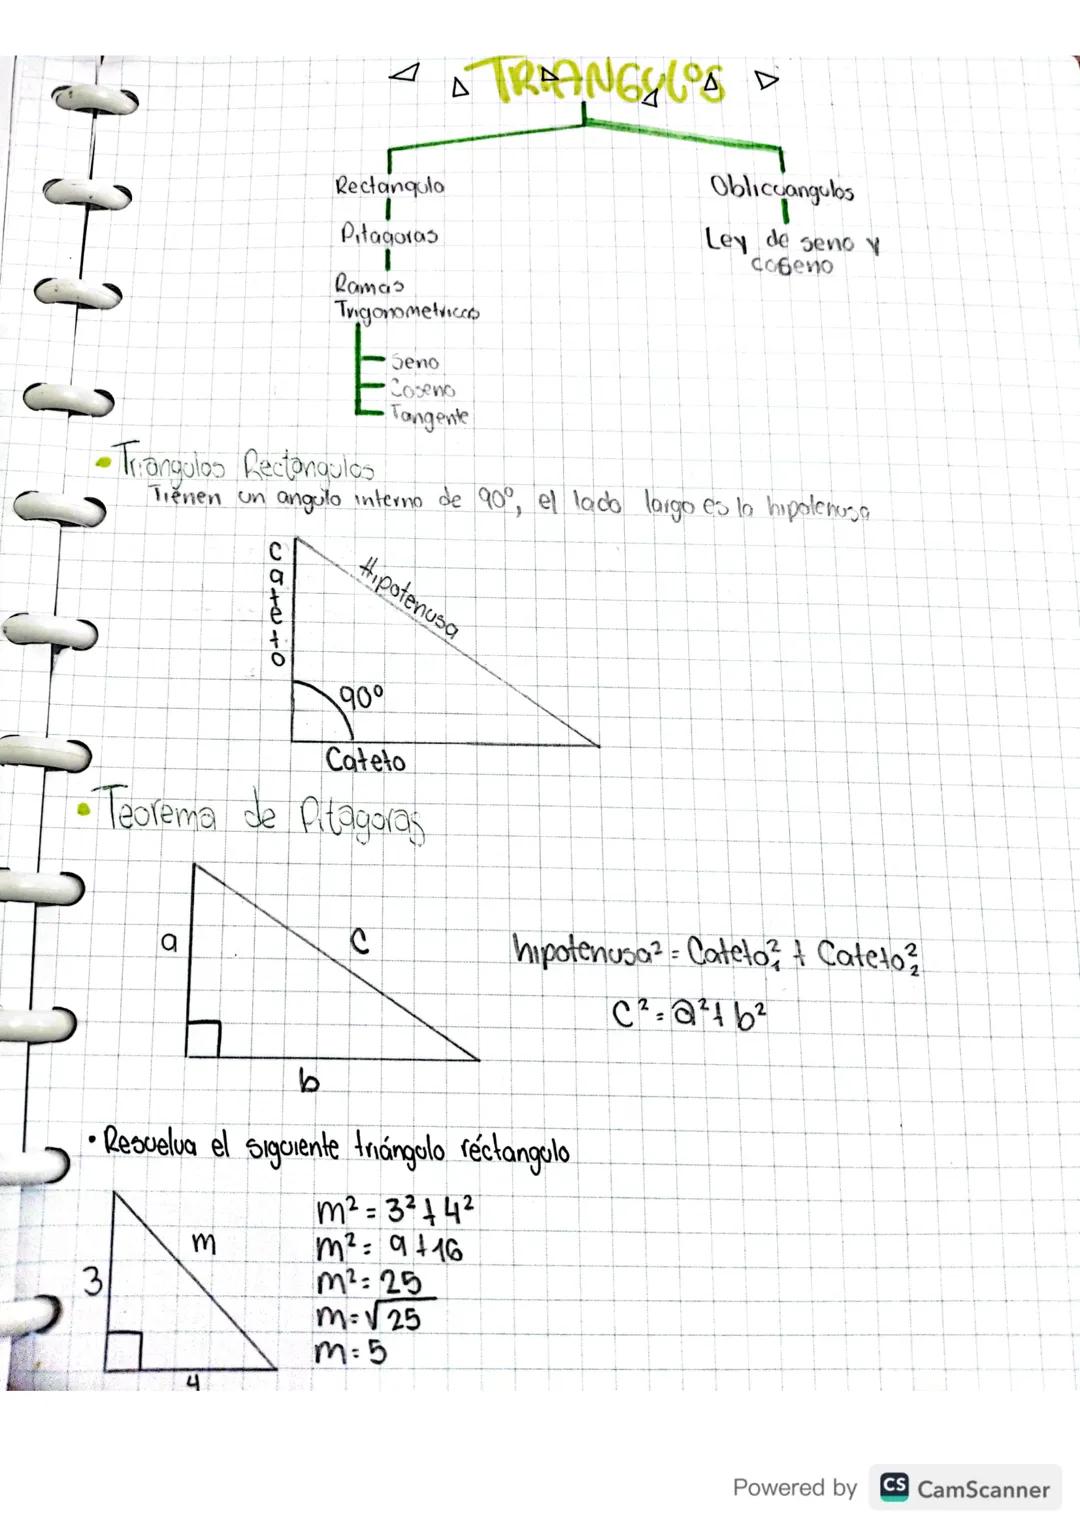 TRIANGULOS
Rectangulo
Oblicuangulos
Pitagoras
Ley de seno y
coseno
Ramas
Trigonometricas
Seno
Coseno
Tangente
• Triangulos Rectangulos
Tienen un angulo interno de 90°, el lado largo es la hipotenusa
Cateto
Hipotenusa
90°
Cateto
• Teorema de Pitagoras
a
c
b
hipotenusa² = Cateto₁² + Cateto₂²
C² = a² + b²
• Resuelva el siguiente triángulo réctangulo
3
m
4
m² = 3² + 4²
m² = 9 + 16
m² = 25
m = √25
m = 5
Powered by CS CamScanner